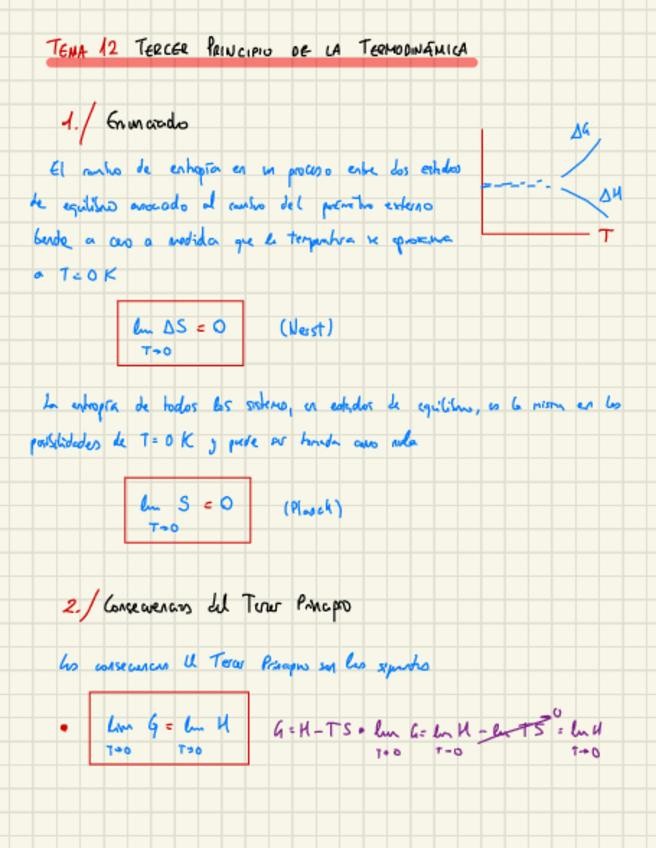 TEMA 12 TERCER PRINCIPIO DE LA TERMODINÁMICA
1./ Enunciado
ΔG
ΔH
T
El cambio de entropía en un proceso entre dos estados
de equilibrio asociado al cambio del parámetro externo
tiende a cero a medida que la temperatura se aproxima
a T=0 K
lim ΔS = 0 (Nerst)
T→0
La entropía de todos los sistemas, en estados de equilibrio, es la misma en las
posibilidades de T=0 K y puede ser tomada como nula
lim S = 0 (Planck)
T→0
2./ Consecuencias del Tercer Principio
Las consecuencias del Tercer Principio son las siguientes
• lim G = lim H G=H-TS • lim G= lim H - lim TS 0 = lim H
T→0 T→0 T→0 T→0 T→0